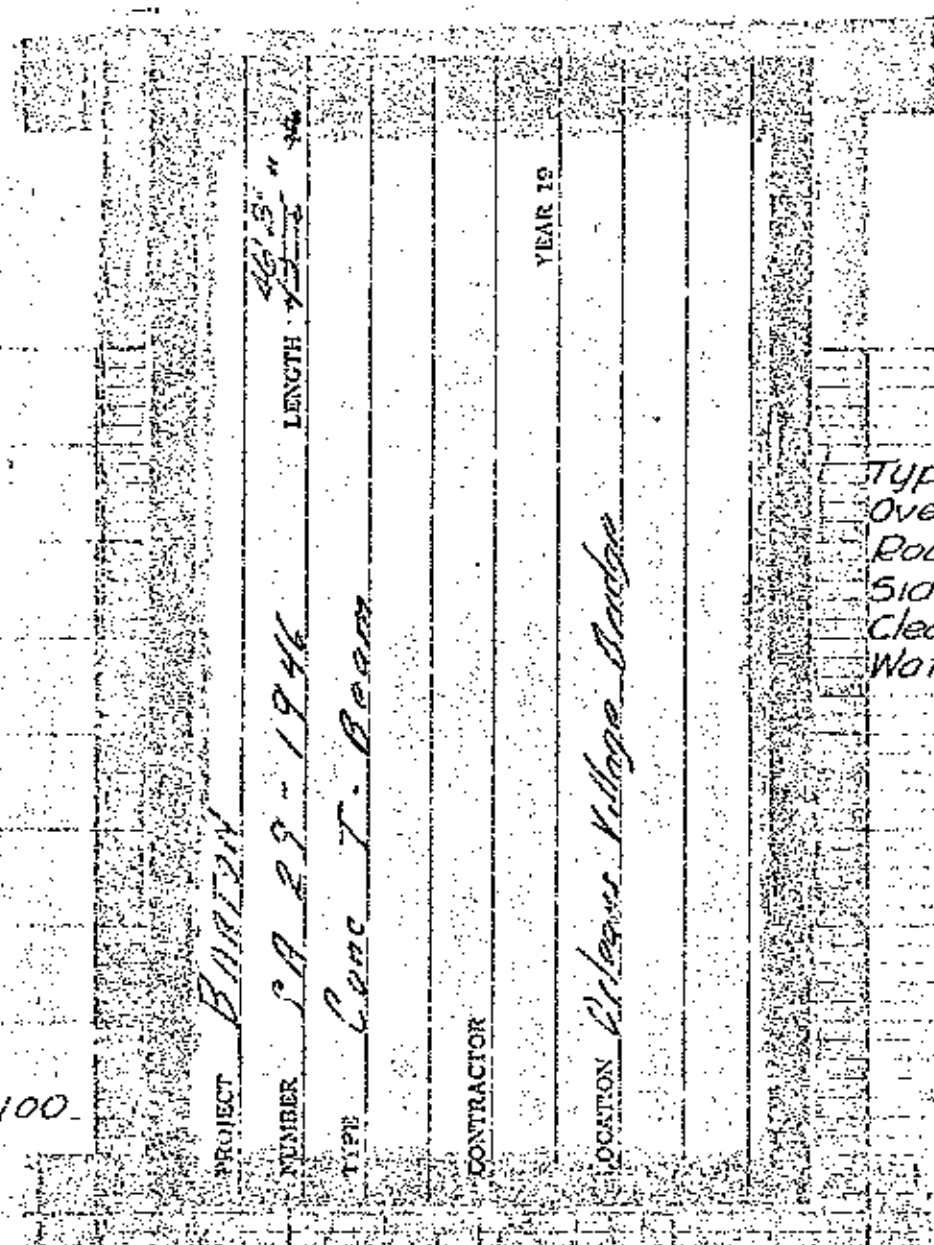 PROJECT BARTON
NUMBER SA 29 - 1946 LENGTH 46'3"
TYPE Conc T-Beam
CONTRACTOR
YEAR 19
LOCATION Orleans Village Bridge
100